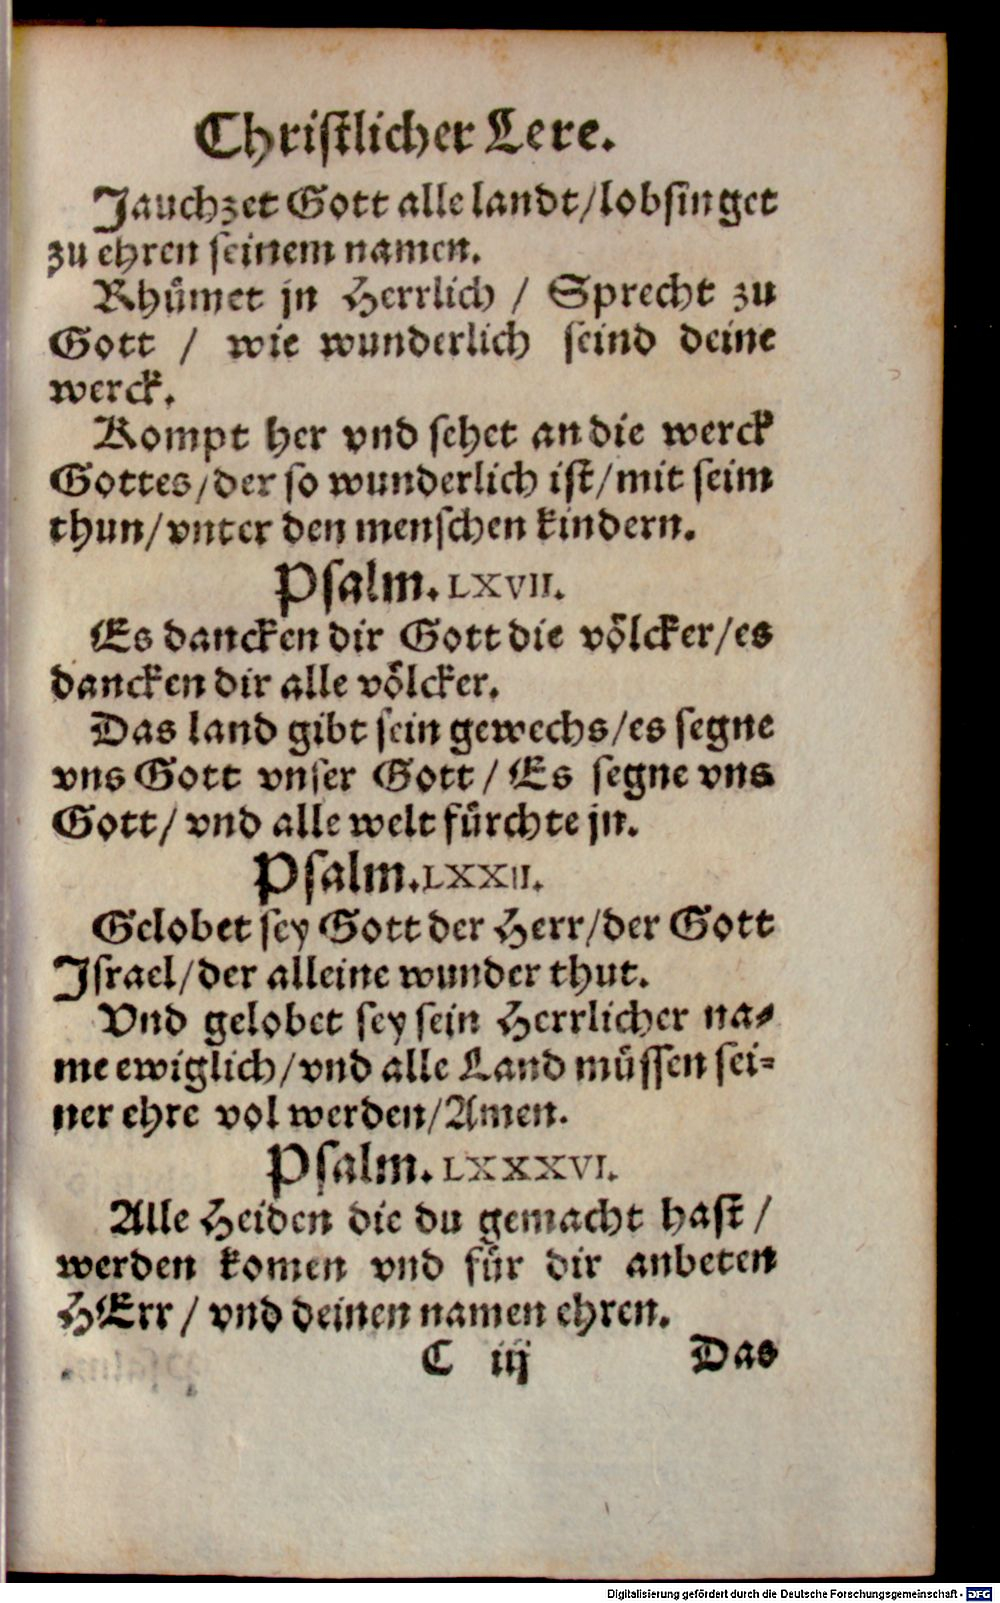 Christlicher Lere.
Jauchzet Gott alle landt/lobsinget
zu ehren seinem namen.
Rhuͤmet jn Herrlich / Sprecht zu
Gott / wie wunderlich seind deine
werck.
Kompt her vnd sehet an die werck
Gottes/der so wunderlich ist/mit seim
thun/vnter den menschen kindern.
Psalm. LXVII.
Es dancken dir Gott die voͤlcker/es
dancken dir alle voͤlcker.
Das land gibt sein gewechs/es segne
vns Gott vnser Gott / Es segne vns
Gott/ vnd alle welt fuͤrchte jn.
Psalm. LXXII.
Gelobet sey Gott der Herr/der Gott
Israel/der alleine wunder thut.
Vnd gelobet sey sein Herrlicher na-
me ewiglich/vnd alle Land muͤssen sei-
ner ehre vol werden/Amen.
Psalm. LXXXVI.
Alle Heiden die du gemacht hast /
werden komen vnd fuͤr dir anbeten
HErr / vnd deinen namen ehren.
C iij Das
Digitalisierung gefördert durch die Deutsche Forschungsgemeinschaft - DFG